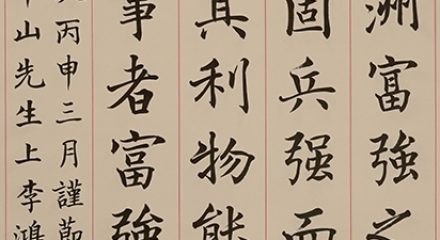 洲富強之
固兵强而
其利物能
事者富強
丙申三月謹節
山先生上李鴻